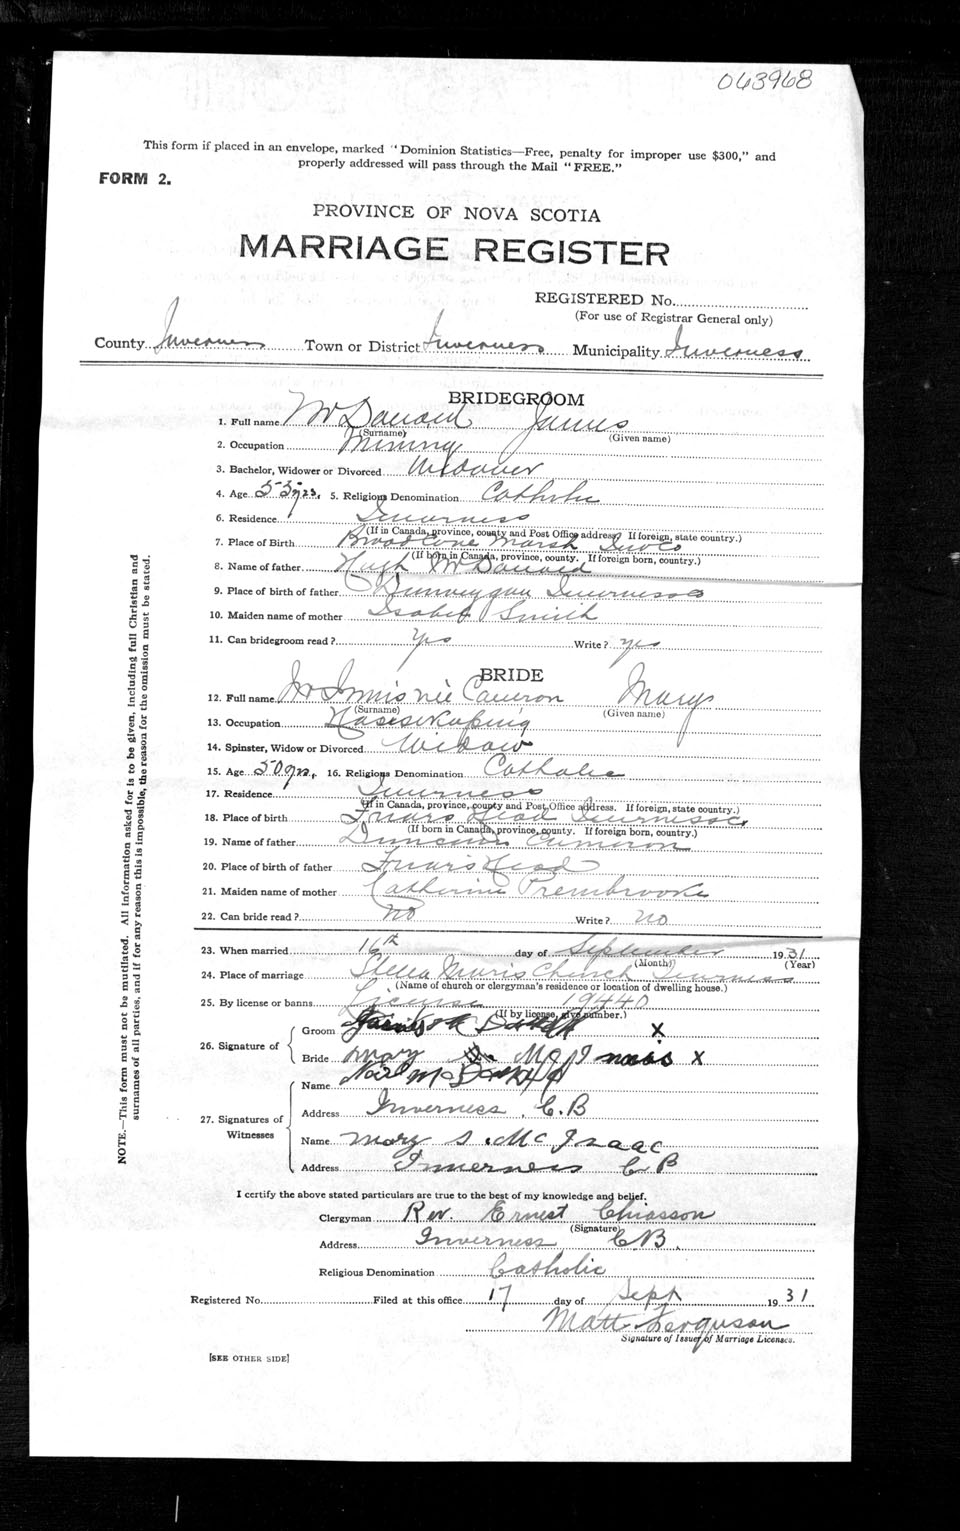 063968
This form if placed in an envelope, marked "Dominion Statistics—Free, penalty for improper use $300," and
properly addressed will pass through the Mail "FREE."
FORM 2.
PROVINCE OF NOVA SCOTIA
MARRIAGE REGISTER
REGISTERED No.
(For use of Registrar General only)
County Inverness Town or District Inverness Municipality Inverness
BRIDEGROOM
1. Full name McDonald James
(Surname) (Given name)
2. Occupation Mining
3. Bachelor, Widower or Divorced Widower
4. Age 53 yrs. 5. Religious Denomination Catholic
6. Residence Inverness
(If in Canada, province, county and Post Office address. If foreign, state country.)
7. Place of Birth Broad Cove Marsh Inv Co
(If born in Canada, province, county. If foreign born, country.)
8. Name of father Hugh McDonald
9. Place of birth of father Inverness
10. Maiden name of mother Isabel Smith
11. Can bridegroom read? Yes Write? yes
BRIDE
12. Full name McInnis née Cameron Mary
(Surname) (Given name)
13. Occupation Housekeeping
14. Spinster, Widow or Divorced Widow
15. Age 50 yrs. 16. Religious Denomination Catholic
17. Residence Inverness
(If in Canada, province, county and Post Office address. If foreign, state country.)
18. Place of birth Friars Head Inverness Co
(If born in Canada, province, county. If foreign born, country.)
19. Name of father Duncan Cameron
20. Place of birth of father Friars Head
21. Maiden name of mother Catherine Prembrooke
22. Can bride read? No Write? No
23. When married 16th day of September 1931
(Month) (Year)
24. Place of marriage Stella Maris Church Inverness
(Name of church or clergyman's residence or location of dwelling house.)
25. By license or banns License 19440
(If by license, give number.)
26. Signature of
Groom James X
Bride Mary McInnis X
27. Signatures of Witnesses
Name
Address Inverness, C.B
Name Mary S. McIsaac
Address Inverness C B
I certify the above stated particulars are true to the best of my knowledge and belief.
Clergyman Rev. Ernest Chiasson
(Signature)
Address Inverness, C.B.
Religious Denomination Catholic
Registered No. Filed at this office 17 day of Sept 1931
Matt Ferguson
Signature of Issuer of Marriage Licenses.
[SEE OTHER SIDE]
NOTE.—This form must not be mutilated. All information asked for is to be given, including full Christian and
surnames of all parties, and if for any reason this is impossible, the reason for the omission must be stated.